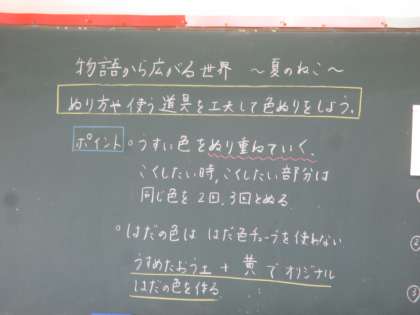 物語から広がる世界 ～夏のねこ～
ぬり方や使う道具を工夫して色ぬりをしよう。
ポイント 。うすい色をぬり重ねていく。
こくしたい時、こくしたい部分は
同じ色を2回、3回とぬる
。はだの色は はだ色チューブを使わない
うすめたおう土 + 黄 でオリジナル
はだの色を作る
②
③